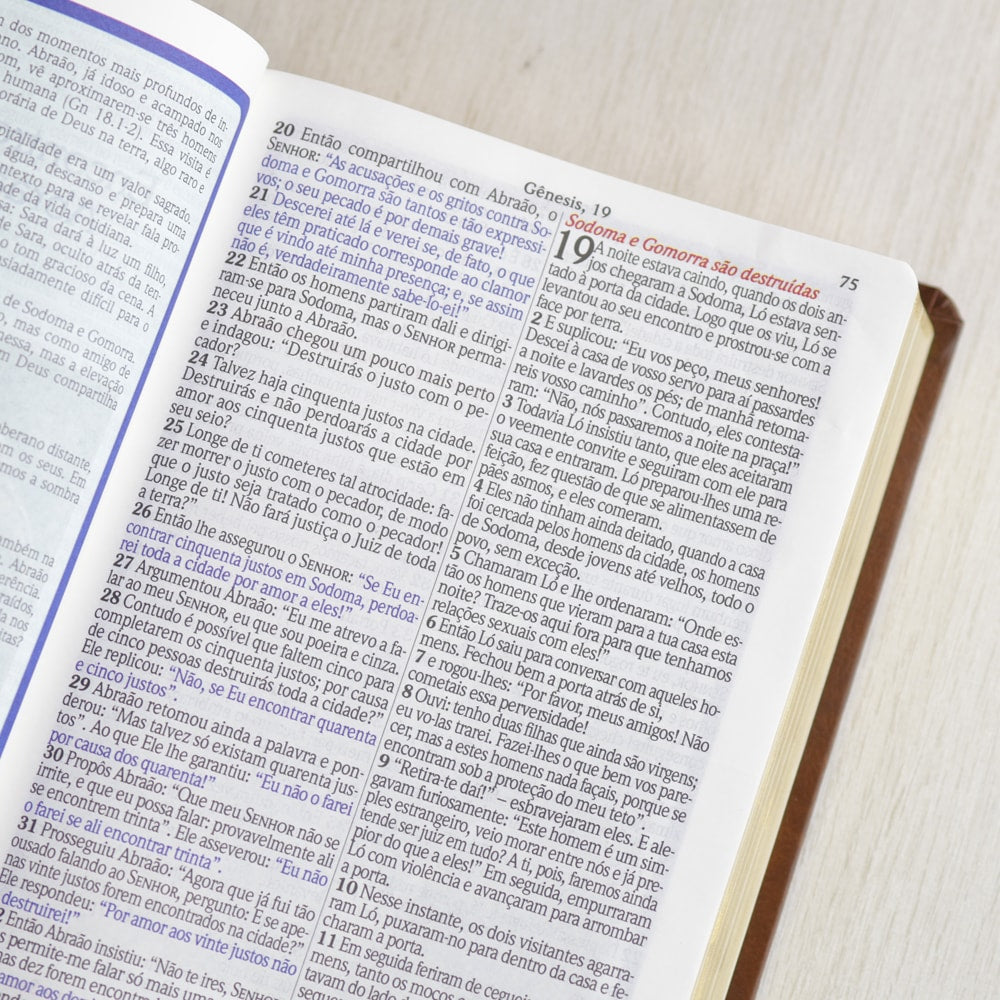 dos momentos mais profundos de in-
ano. Abraão, já idoso e acampado nos
om, vê aproximarem-se três homens
humana (Gn 18.1-2). Essa visita é
orária de Deus na terra, algo raro e
pitalidade era um valor sagrado.
água, descanso e prepara uma
ntexto para se revelar fala pro-
dade da vida cotidiana.
sa: Sara dará à luz um filho.
de Sara, oculto atrás da ten-
o tom gracioso da cena. A
asiadamente difícil para o
de Sodoma e Gomorra.
o, mas como amigo de
messa, mas a elevação
m Deus compartilha
berano distante,
om os seus. Em
mos a sombra
ambém na
Abraão
erência.
raídos,
da nos
itas?
Gênesis, 19
75
20 Então compartilhou com Abraão, o
SENHOR: “As acusações e os gritos contra So-
doma e Gomorra são tantos e tão expressi-
vos; o seu pecado é por demais grave!
21 Descerei até lá e verei se, de fato, o que
eles têm praticado corresponde ao clamor
que é vindo até minha presença; e, se assim
não é, verdadeiramente sabe-lo-ei!”
22 Então os homens partiram dali e dirigi-
ram-se para Sodoma, mas o SENHOR perma-
neceu junto a Abraão.
23 Abraão chegou um pouco mais perto
e indagou: “Destruirás o justo com o pe-
cador?
24 Talvez haja cinquenta justos na cidade.
Destruirás e não perdoarás a cidade por
amor aos cinquenta justos que estão em
seu seio?
25 Longe de ti cometeres tal atrocidade: fa-
zer morrer o justo com o pecador, de modo
que o justo seja tratado como o pecador!
Longe de ti! Não fará justiça o Juiz de toda
a terra?”
26 Então lhe assegurou o SENHOR: “Se Eu en-
contrar cinquenta justos em Sodoma, perdoa-
rei toda a cidade por amor a eles!”
27 Argumentou Abraão: “Eu me atrevo a fa-
lar ao meu SENHOR, eu que sou poeira e cinza.
28 Contudo é possível que faltem cinco para
completarem os cinquenta justos; por causa
de cinco pessoas destruirás toda a cidade?”
Ele replicou: “Não, se Eu encontrar quarenta
e cinco justos”.
29 Abraão retomou ainda a palavra e pon-
derou: “Mas talvez só existam quarenta jus-
tos”. Ao que Ele lhe garantiu: “Eu não o farei
por causa dos quarenta!”
30 Propôs Abraão: “Que meu SENHOR não se
irrite, e que eu possa falar: provavelmente ali
se encontrem trinta”. Ele asseverou: “Eu não
o farei se ali encontrar trinta”.
31 Prosseguiu Abraão: “Agora que já fui tão
ousado falando ao SENHOR, pergunto: E se ape-
nas vinte justos forem encontrados na cidade?”
Ele respondeu: “Por amor aos vinte justos não
destruirei!”
2 Então Abraão insistiu: “Não te ires, SENHOR,
s permite-me falar só mais uma
nas dez forem encontrados
amor aos de
Sodoma e Gomorra são destruídas
19 A noite estava caindo, quando os dois an-
jos chegaram a Sodoma, Ló estava sen-
tado à porta da cidade. Logo que os viu, Ló se
levantou ao seu encontro e prostrou-se com a
face por terra.
2 E suplicou: “Eu vos peço, meus senhores!
Descei à casa de vosso servo para aí passardes
a noite e lavardes os pés; de manhã retoma-
reis vosso caminho”. Contudo, eles contesta-
ram: “Não, nós passaremos a noite na praça!”
3 Todavia Ló insistiu tanto, que eles aceitaram
o veemente convite e seguiram com ele para
sua casa e entraram. Ló preparou-lhes uma re-
feição, fez questão de que se alimentassem de
pães asmos, e eles comeram.
4 Eles não tinham ainda deitado, quando a casa
foi cercada pelos homens da cidade, os homens
de Sodoma, desde jovens até velhos, todo o
povo, sem exceção.
5 Chamaram Ló e lhe ordenaram: “Onde es-
tão os homens que vieram para a tua casa esta
noite? Traze-os aqui fora para que tenhamos
relações sexuais com eles!”
6 Então Ló saiu para conversar com aqueles ho-
mens. Fechou bem a porta atrás de si,
7 e rogou-lhes: “Por favor, meus amigos! Não
cometais essa perversidade!
8 Ouvi: tenho duas filhas que ainda são virgens;
eu vo-las trarei. Fazei-lhes o que bem vos pare-
cer, mas a estes homens nada façais, porque se
encontram sob a proteção do meu teto”.
9 “Retira-te daí!” – esbravejaram eles. E ale-
gavam furiosamente: “Este homem é um sim-
ples estrangeiro, veio morar entre nós e já pre-
tende ser juiz em tudo? A ti, pois, faremos ainda
pior do que a eles!” Em seguida, empurraram
Ló com violência e avançaram para arrombar
a porta.
10 Nesse instante, os dois visitantes agarra-
ram Ló, puxaram-no para dentro da casa e fe-
charam a porta.
11 Em seguida feriram de cegueira
mens, tanto os moços
tavam do lado de